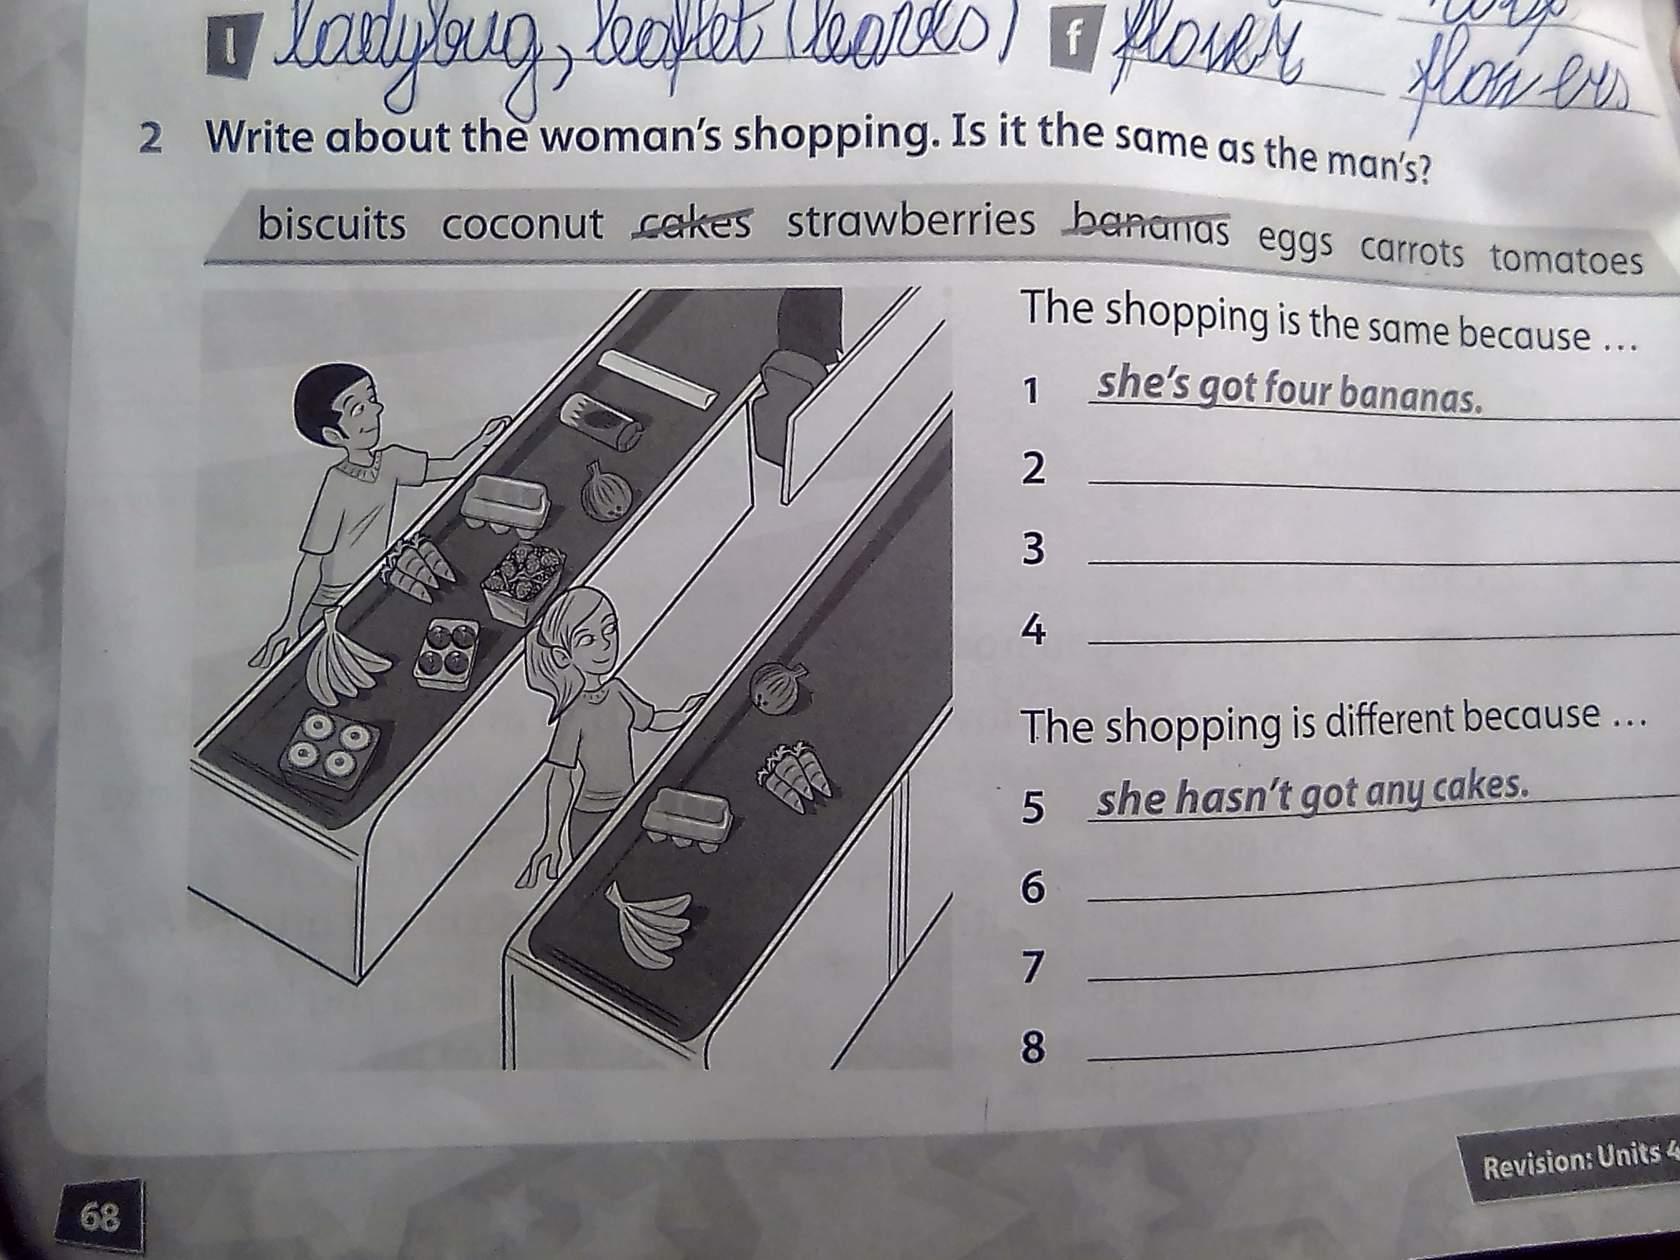 l ladybug, leaflet ( f flower
flowers
2 Write about the woman's shopping. Is it the same as the man's?
biscuits coconut cakes strawberries bananas eggs carrots tomatoes
The shopping is the same because ...
1 she's got four bananas.
2
3
4
The shopping is different because ...
5 she hasn't got any cakes.
6
7
8
Revision: Units 4
68